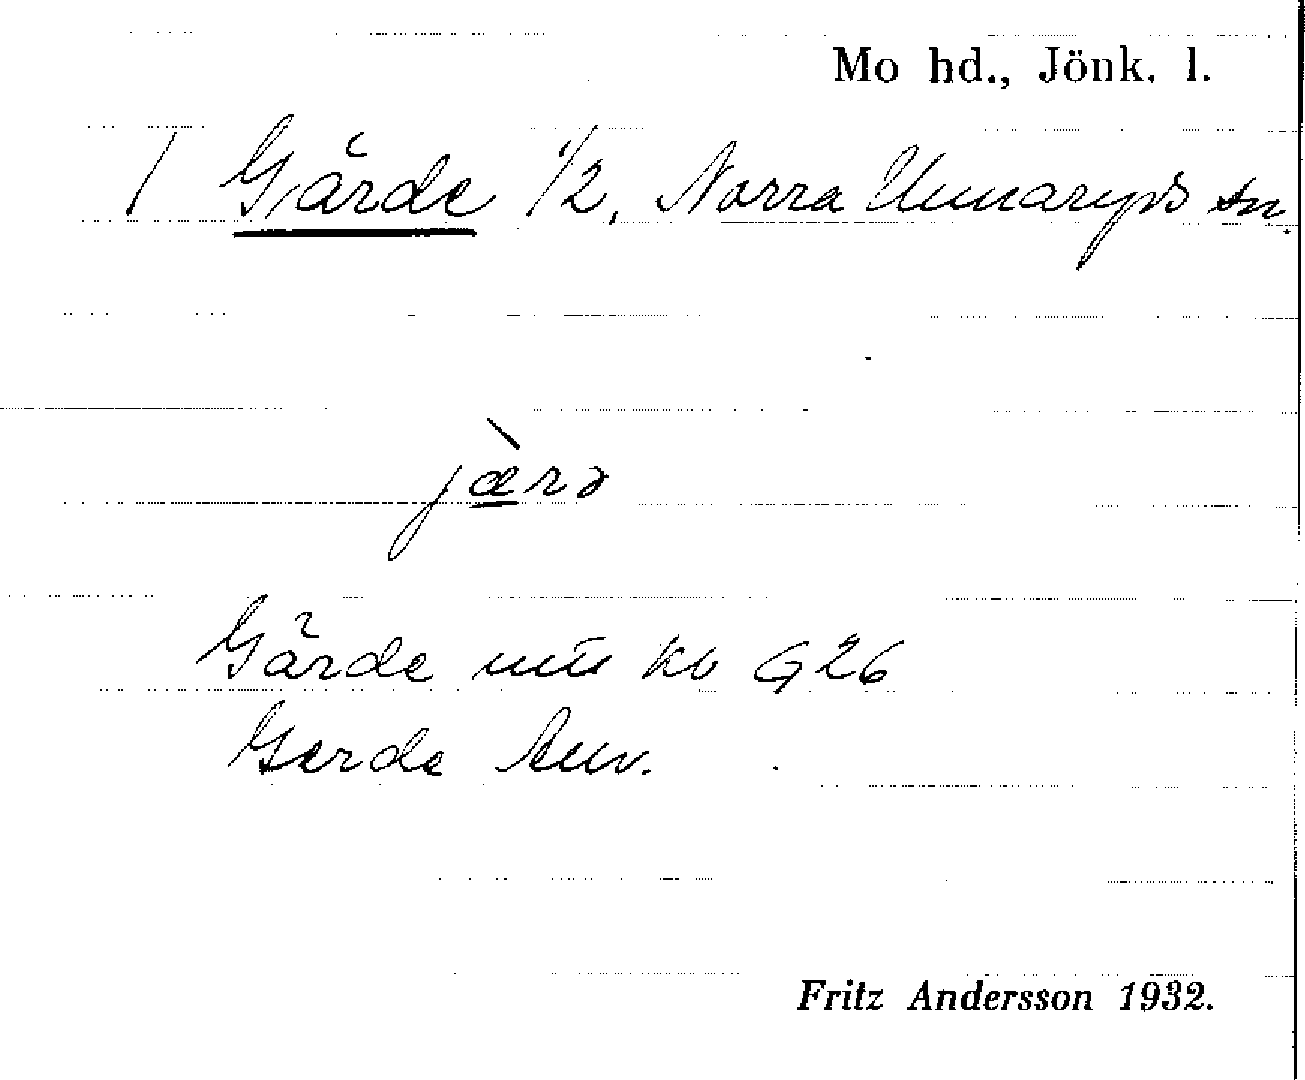 Mo hd., Jönk. l.
/ Gärde 1/2, Norra Unnaryds sn.
jæ̀rə
Gärde kb G26
Gerde
Fritz Andersson 1932.